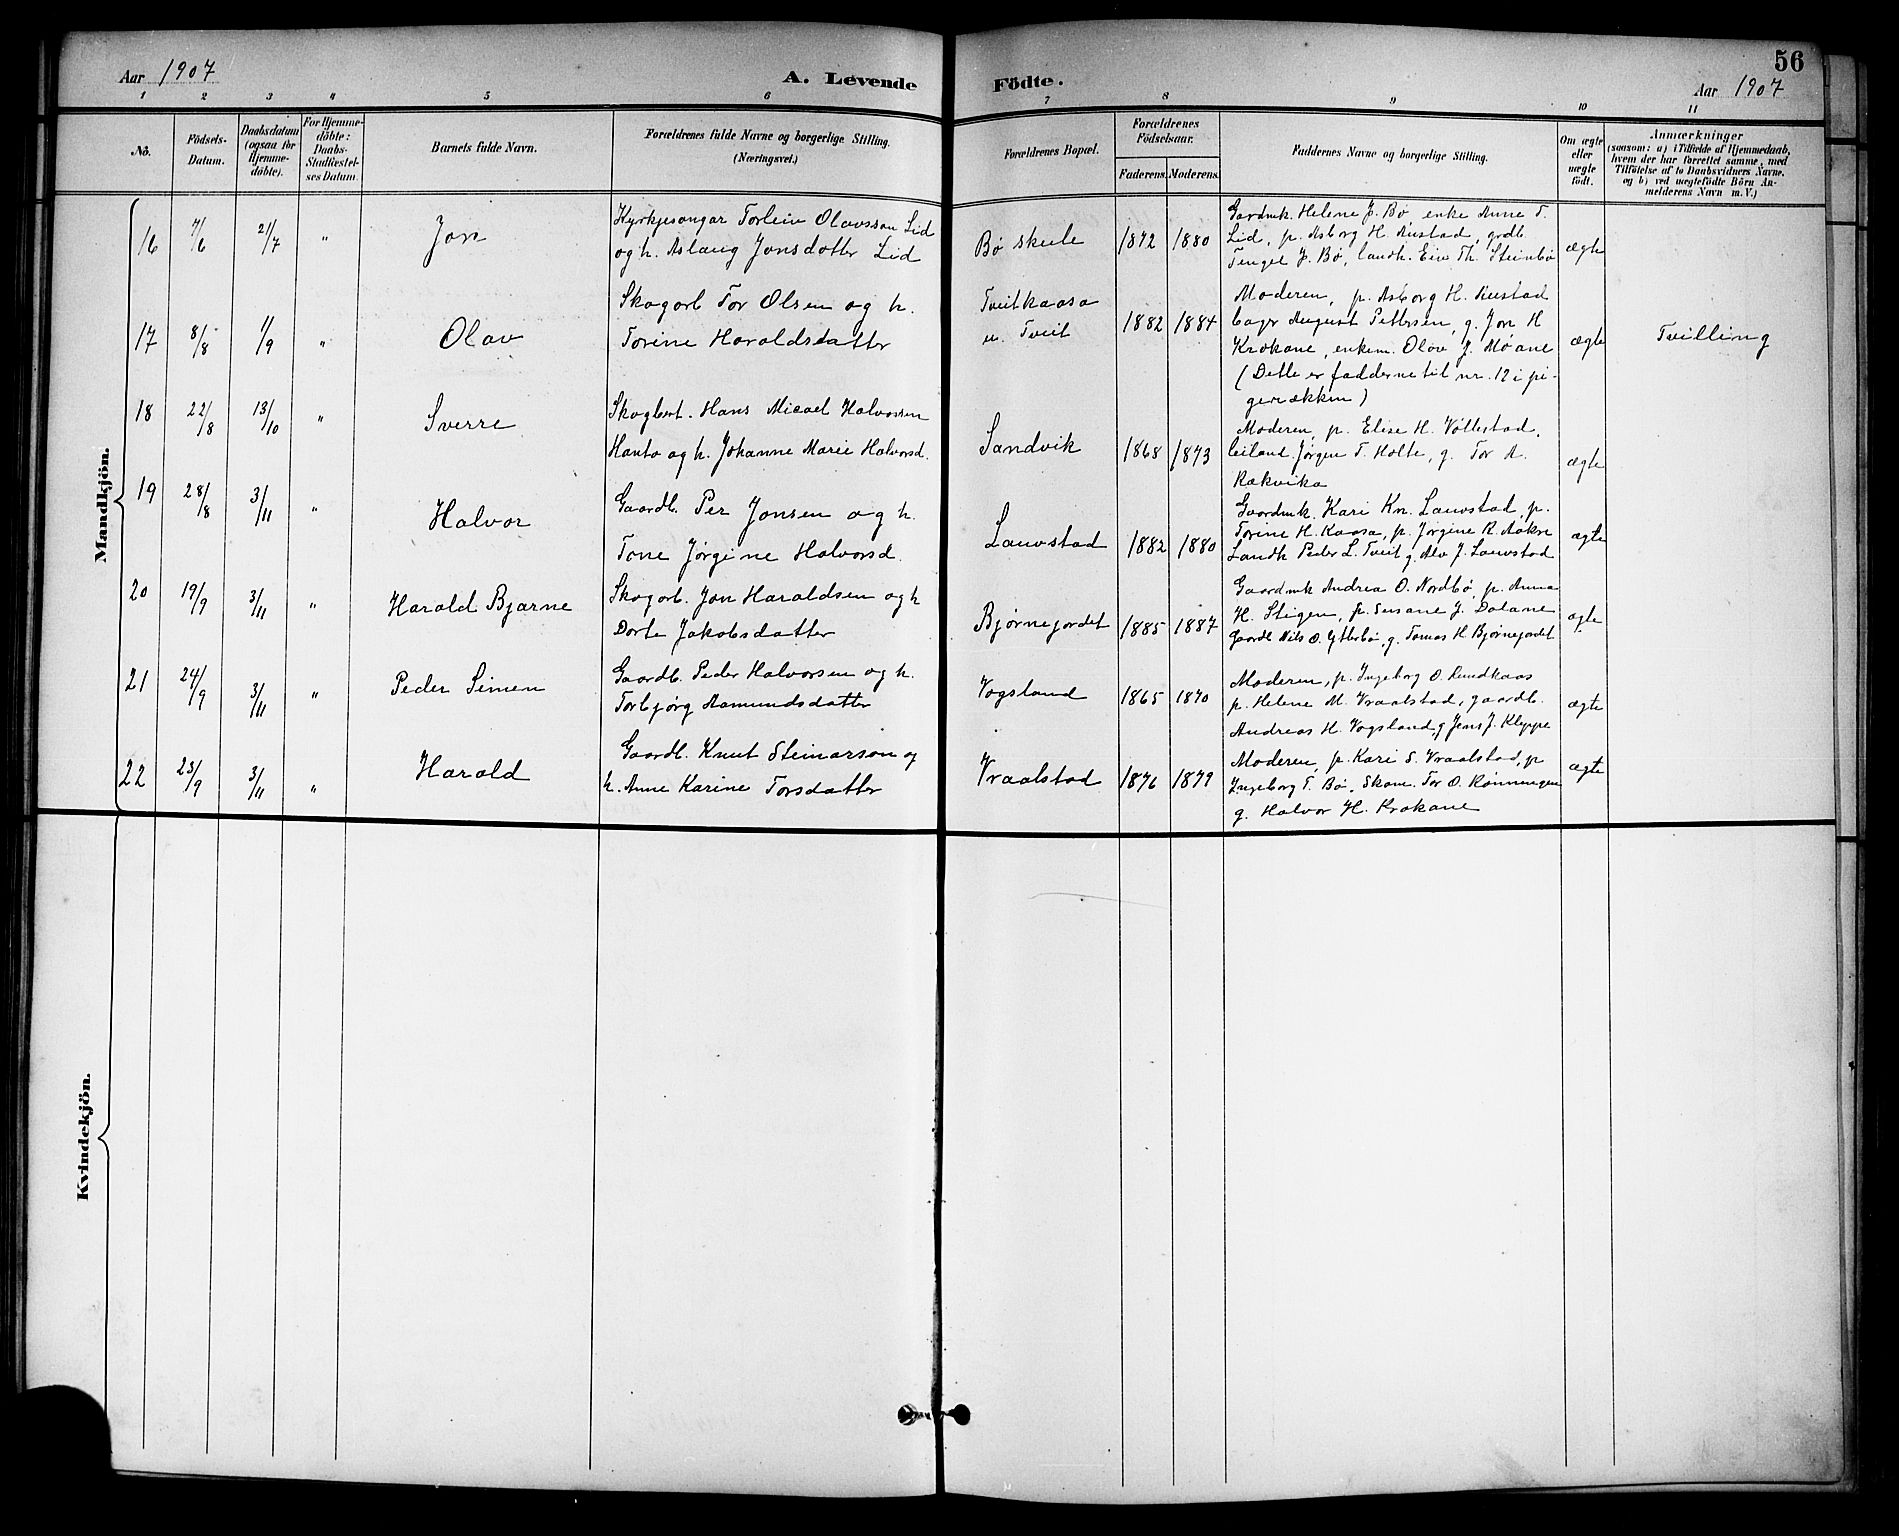 56
Aar 1907
A. Levende Födte.
Aar 1907
1 2 3 4 5 6 7 8 9 10 11
No.
Födsels-Datum.
Daabsdatum (ogsaa for Hjemme-döbte).
For Hjemme-döbte: Daabs-Stadfæstel-ses Datum.
Barnets fulde Navn.
Forældrenes fulde Navne og borgerlige Stilling. (Næringsvei.)
Forældrenes Bopæl.
Forældrenes Födselsaar.
Faderens. Moderens.
Faddernes Navne og borgerlige Stilling.
Om ægte eller uægte født.
Anmærkninger
(saasom: a) i Tilfælde af Hjemmedaab,
hvem der har forrettet samme, med
Tilföielse af to Daabsvidners Navne,
og b) ved uægtefødte Börn An-
melderens Navn m. V.)
Mandkjön.
16 7/6 21/7 " Jon
Kyrkjesongar Torleiv Olavsson Lid
og h. Aslaug Jonsdotter Lid
Bø skule 1872 1880
Gardmk. Helene J. Bø enke Anne T.
Lid, p. Asborg H. Rustad, grdb.
Tengel J. Bø, landh. Eiv Th. Steinbø
ægte
17 8/8 1/9 " Olav
Skogarb Tor Olsen og h.
Torine Haroldsdatter
Tveitkaasa
u. Tveit
1882 1884
Moderen, p. Asborg H. Rustad
bager August Pettersen, g. Jon H
Krokane, enkem. Olav J. Moane
(Dette er fadderne til nr. 12 i pi-
gerækken)
ægte Tvilling
18 22/8 13/10 " Sverre
Skogbest. Hans Micael Halvorsen
Hanto og h. Johanne Marie Halvorsd.
Sandvik 1868 1873
Moderen, p. Elise H. Vøllestad,
leiland. Jørgen T. Holte, g. Tor A.
Rakvika
ægte
19 28/8 3/11 " Halvor
Gaardb. Per Jonsen og h.
Tone Jørgine Halvorsd.
Lauvstad 1882 1880
Gaardmk. Kari Kn. Lauvstad, p.
Torine H. Kaasa, p. Jørgine R. Aakre
Landh Peder L. Tveit g. Alv J. Lauvstad
ægte
20 19/9 3/11 " Harald Bjarne
Skogarb. Jon Haraldsen og h
Dorte Jakobsdatter
Bjørnejordet 1885 1887
Gaardmk Andrea O. Nordbø, p. Anna
H. Stigen, p. Susane J. Dalane
Gaardb Nils O. Ytterbø, g. Tomas H Bjørnejordet
ægte
21 24/9 3/11 " Peder Simen
Gaardb. Peder Halvorsen og h.
Torbjørg Aamundsdatter
Vogsland 1865 1870
Moderen, p. Ingeborg O. Rundkaas
p. Helene M. Vraalstad, gaardb.
Andreas H. Vogsland, g Jens J. Kleppe
ægte
22 23/9 3/11 " Harald
Gaardb. Knut Steinarson og
h. Anne Karine Torsdatter
Vraalstad 1876 1879
Moderen, p. Kari S. Vraalstad, p
Ingeborg T. Bø, Skom. Tor O. Rønningen
g. Halvor H. Krokane
ægte
Kvindekjön.